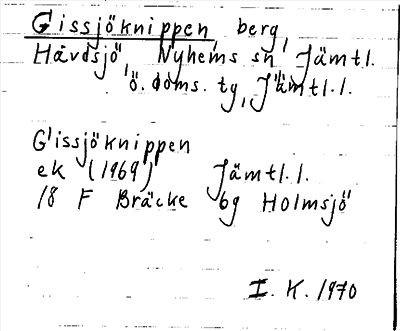 Gissjöknippen, berg,
Håvdsjö, Nyhems sn, Jämtl.
ö. doms. tg, Jämtl. l.
Gissjöknippen
ek (1969) Jämtl. l.
18 F Bräcke 6g Holmsjö
I. K. 1970